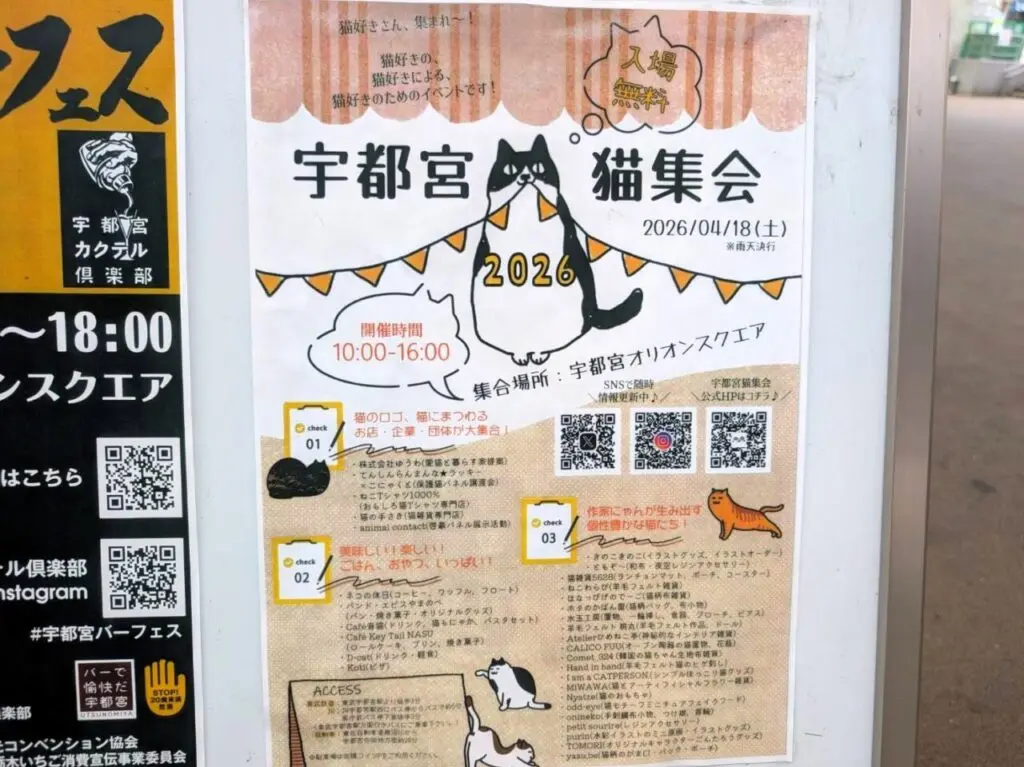 フェス
宇都宮
カクテル
倶楽部
～18:00
ンスクエア
はこちら
ール倶楽部
nstagram
#宇都宮バーフェス
バーで
愉快だ
宇都宮
UTSUNOMIYA
STOP!
倶楽部
コンベンション協会
栃木いちご消費宣伝事業委員会
猫好きさん、集まれ～!
猫好きの、
猫好きによる、
猫好きのためのイベントです!
入場
無料
宇都宮 猫集会
2026/04/18(土)
※雨天決行
2026
開催時間
10:00-16:00
集合場所:宇都宮オリオンスクエア
SNSで随時
情報更新中♪
宇都宮猫集会
公式HPはコチラ♪
check
01
猫のロゴ、猫にまつわる
お店・企業・団体が大集合!
・株式会社ゆうわ(愛猫と暮らす家提案)
・てんしんらんまんな★ラッキー
×こにゃくと(保護猫パネル譲渡会)
・ねこTシャツ1000%
(おもしろ猫Tシャツ専門店)
・猫の手さき(猫雑貨専門店)
・animal contact(啓発パネル展示活動)
check
02
美味しい!楽しい!
ごはん、おやつ、いっぱい!
・ネコの休日(コーヒー、ワッフル、フロート)
・パンド・エピスやまのべ
(パン・焼き菓子・オリジナルグッズ)
・Café音猫(ドリンク、猫もにゃか、パスタセット)
・Café Key Tail NASU
(ロールケーキ、プリン、焼き菓子)
・D-cat(ドリンク・軽食)
・Koti(ピザ)
check
03
作家にゃんが生み出す
個性豊かな猫たち!
・きのこきのこ(イラストグッズ、イラストオーダー)
・ともぞ～(和布・夜空レジンアクセサリー)
・猫雑貨5628(ランチョンマット、ポーチ、コースター)
・ねこわらび(羊毛フェルト雑貨)
・はなっぴげのでーご(猫柄布雑貨)
・ホタのかばん屋(猫柄バッグ、布小物)
・水玉工房(置物、一輪挿し、食器、ブローチ、ピアス)
・羊毛フェルト 桃丸(羊毛フェルト作品、ドール)
・Atelierひめねこ亭(神秘的なインテリア雑貨)
・CALICO FUU(オーブン陶器の猫置物、花器)
・Comet_324(韓国の猫ちゃん生地布雑貨)
・Hand in hand(羊毛フェルト猫のヒゲ刺し)
・I am a CATPERSON(シンプルほっこり猫グッズ)
・MIWAWA(猫とアーティフィシャルフラワー雑貨)
・Nyatze(猫のおもちゃ)
・odd-eye(猫モチーフミニチュアフェイクフード)
・onineko(手刺繍布小物、つけ襟、首輪)
・petit sourire(レジンアクセサリー)
・purin(水彩イラストのミニ原画・イラストグッズ)
・TOMORI(オリジナルキャラクターごんたろうグッズ)
・yasu.bei(猫柄のがま口・バック・ポーチ)
ACCESS